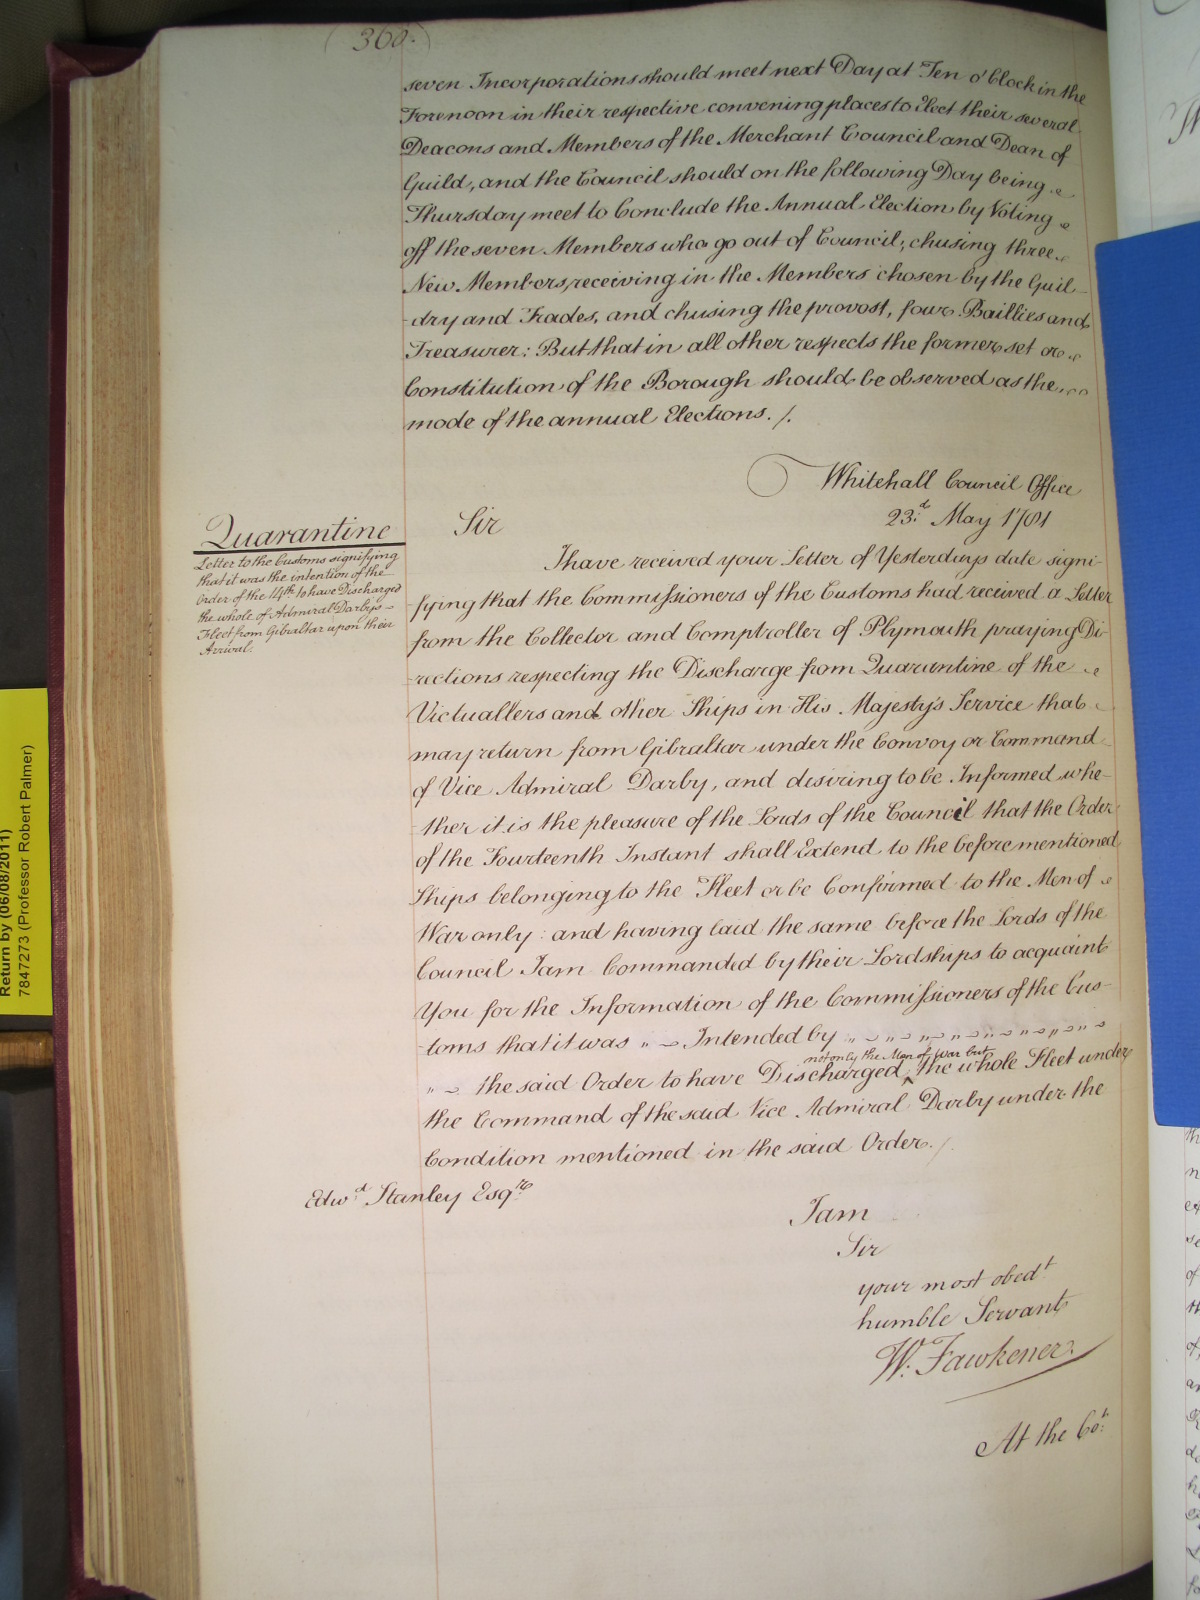 (360.)
seven Incorporations should meet next Day at Ten o'Clock in the
Forenoon in their respective convening places to Elect their several
Deacons and Members of the Merchant Council and Dean of
Guild, and the Council should on the following Day being
Thursday meet to Conclude the Annual Election by Voting
off the seven Members who go out of Council; chusing three
New Members, receiving in the Members chosen by the Guil-
-dry and Trades, and chusing the provost, four Baillies and
Treasurer: But that in all other respects the former set or
Constitution of the Borough should be observed as the
mode of the annual Elections. /.
Whitehall Council Office
23.d May 1781
Quarantine
Letter to the Customs signifying
that it was the intention of the
Order of the 14th to have Discharged
the whole of Admiral Darbys
Fleet from Gibraltar upon their
Arrival.
Sir
I have received your Letter of Yesterdays date signi-
-fying that the Commissioners of the Customs had received a Letter
from the Collector and Comptroller of Plymouth praying Di-
-rections respecting the Discharge from Quarantine of the
Victuallers and other Ships in His Majesty's Service that
may return from Gibraltar under the Convoy or Command
of Vice Admiral Darby, and desiring to be Informed whe-
-ther it is the pleasure of the Lords of the Council that the Order
of the Fourteenth Instant shall Extend to the beforementioned
Ships belonging to the Fleet or be Confirmed to the Men of
War only: and having laid the same before the Lords of the
Council I am Commanded by their Lordships to acquaint
You for the Information of the Commissioners of the Cus-
-toms that it was Intended by
not only the Men of War but
the said Order to have Discharged ^ the whole Fleet under
the Command of the said Vice Admiral Darby under the
Condition mentioned in the said Order. /.
Edwd. Stanley Esqre.
I am
Sir
your most obedt
humble Servant
W. Fawkener.
At the Cot:
Return by (06/08/2011)
7847273 (Professor Robert Palmer)